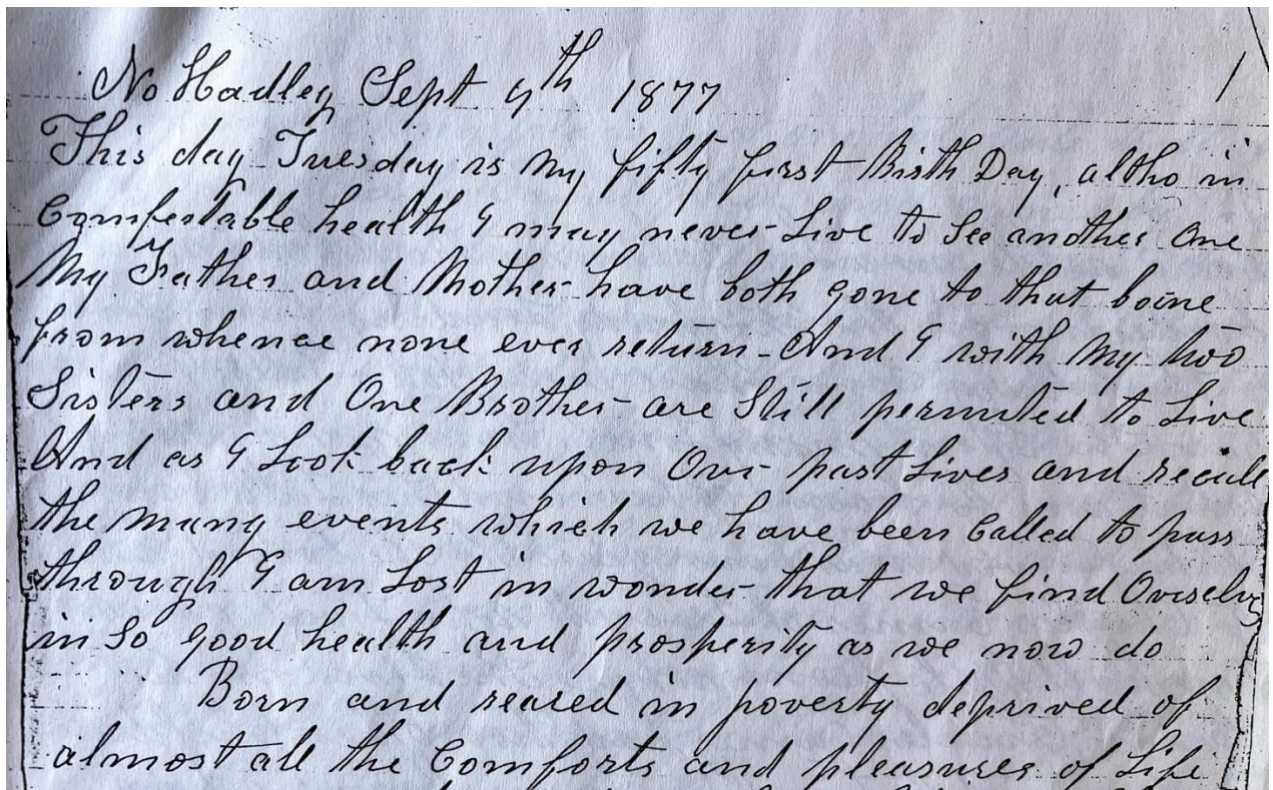 No Hadley Sept 4th 1877
1
This day Tuesday is my fifty first Birth Day, altho in
Comfortable health I may never Live to See another One
My Father and Mother have both gone to that boine
from whence none ever return - And I with My two
Sisters and One Brother are Still permited to Live
And as I Look back upon Our past Lives and recall
the many events which we have been Called to pass
through I am Lost in wonder that we find Ourselvs
in So good health and prosperity as we now do
Born and reared in poverty deprived of
almost all the Comforts and pleasures of Life